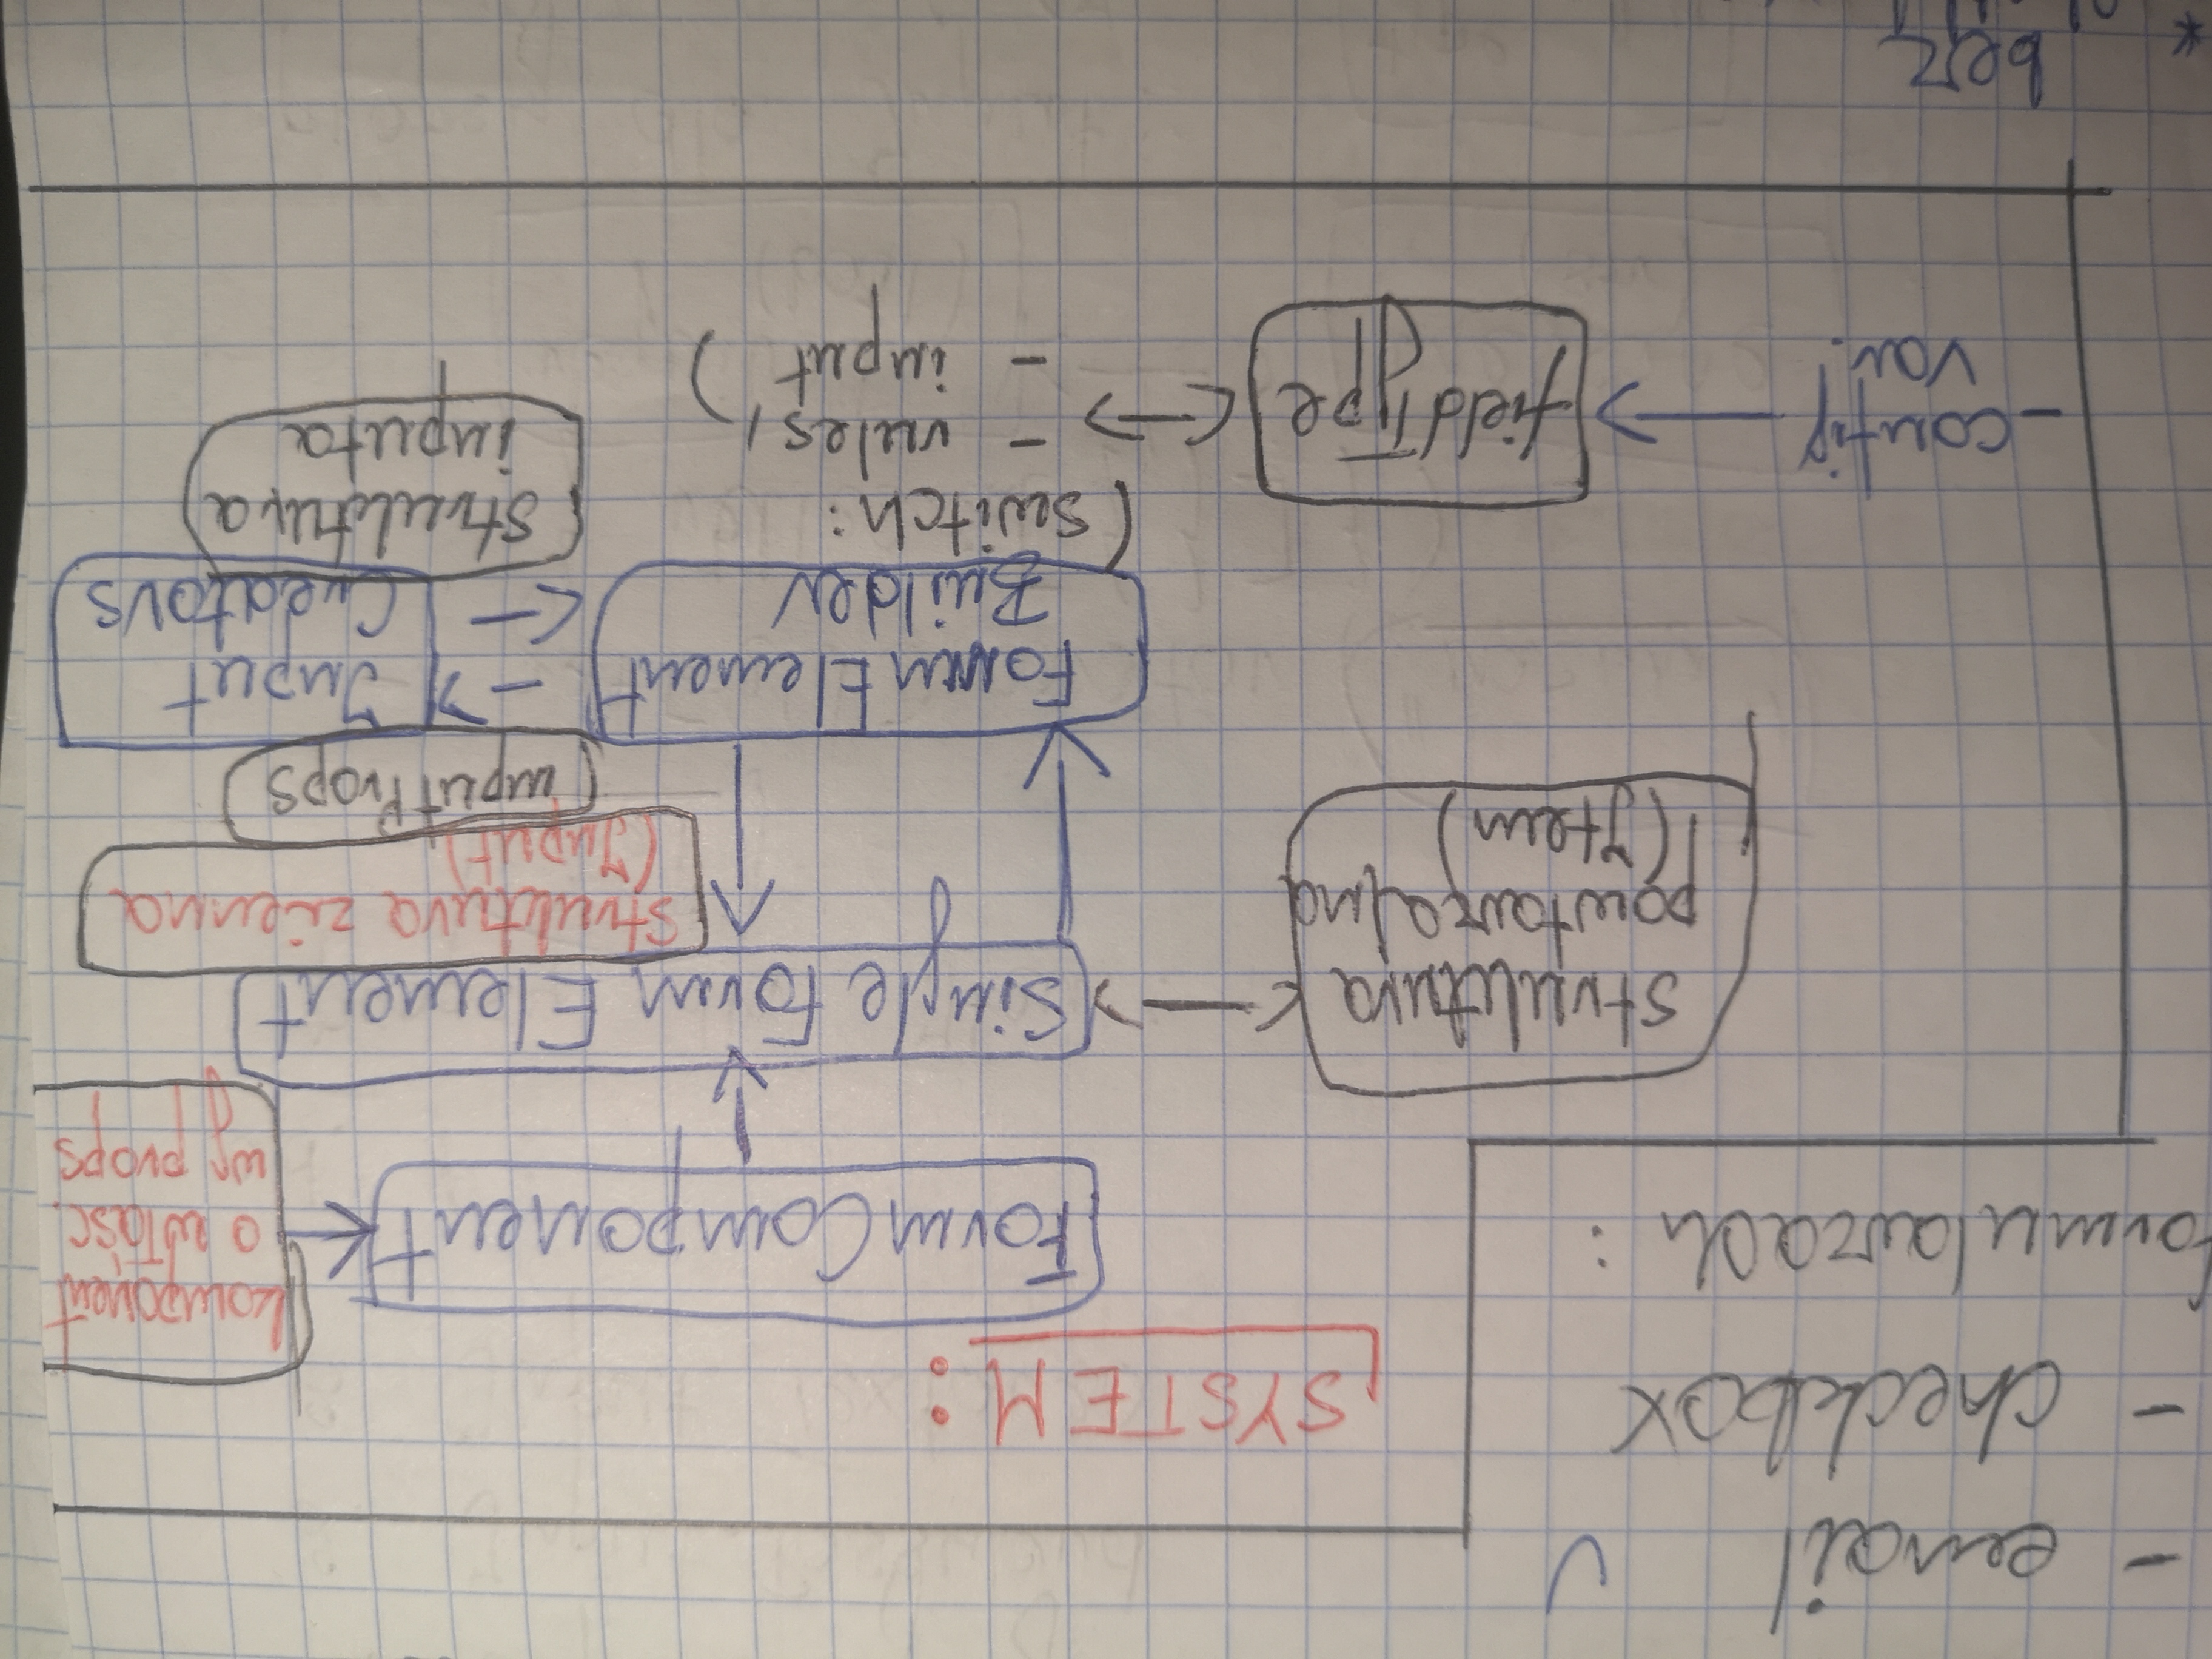 - email ✓
- checkbox
formularzach :
SYSTEM:
FormComponent
komponent
o właśc.
wg props
Single Form Element
struktura
powtarzalna
(Item)
struktura zienna
(Input)
inputProps
FormElement
Builder
Input
Creators
struktura
inputa
(switch:
- rules,
- input )
fieldType
- config
var.
bez
*